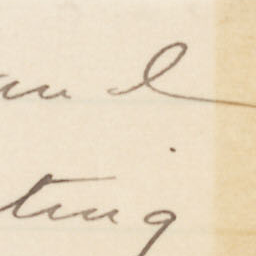 and
ting